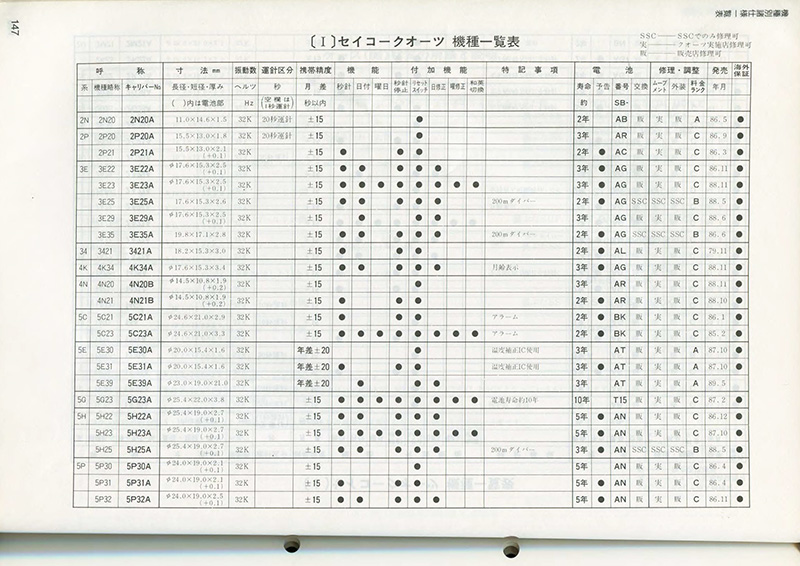 147
機種別諸仕様一覧表
〔Ⅰ〕セイコークオーツ 機種一覧表
SSC――SSCでのみ修理可
実――クオーツ実施店修理可
販――販売店修理可
呼 称 寸 法 mm 振動数 運針区分 携帯精度 機 能 付 加 機 能 特 記 事 項 電 池 修理・調整 発売 海外保証
系 機種略称 キャリバーNo 長径・短径・厚み ヘルツ 秒 月 差 秒針 日付 曜日 秒針停止 リセットスイッチ 日修正 曜修正 和英切換 寿命 予告 番号 交換 ムーブメント 外装 料金ランク 年月
( )内は電池部 Hz (空欄は1秒運針) 秒以内 約 SB-
2N 2N20 2N20A 11.0×14.6×1.5 32K 20秒運針 ±15 ● 2年 AB 販 実 販 A 86.5 ●
2P 2P20 2P20A 15.5×13.0×1.8 32K 20秒運針 ±15 ● 3年 AR 販 実 販 C 86.9 ●
2P21 2P21A 15.5×13.0×2.1 (+0.1) 32K ±15 ● ● ● 2年 ● AC 販 実 販 C 86.3 ●
3E 3E22 3E22A φ17.6×15.3×2.5 (+0.1) 32K ±15 ● ● ● ● ● 3年 ● AG 販 実 販 C 86.11 ●
3E23 3E23A φ17.6×15.3×2.5 (+0.1) 32K ±15 ● ● ● ● ● ● ● ● 3年 ● AG 販 実 販 C 88.11 ●
3E25 3E25A 17.6×15.3×2.6 32K ±15 ● ● ● ● ● 200mダイバー 2年 ● AG SSC SSC SSC B 88.5 ●
3E29 3E29A φ17.6×15.3×2.5 (+0.1) 32K ±15 ● ● ● 3年 ● AG 販 実 販 C 88.6 ●
3E35 3E35A 19.8×17.1×2.8 32K ±15 ● ● ● ● ● 200mダイバー 2年 ● AG SSC SSC SSC B 86.6 ●
34 3421 3421A 18.2×15.3×3.0 32K ±15 ● ● ● 2年 ● AL 販 実 販 C 79.11 ●
4K 4K34 4K34A φ17.6×15.3×3.4 32K ±15 ● ● ● ● ● 月齢表示 3年 ● AG 販 実 販 C 88.11 ●
4N 4N20 4N20B φ14.5×10.8×1.9 (+0.2) 32K ±15 ● 3年 AR 販 実 販 C 88.11 ●
4N21 4N21B φ14.5×10.8×1.9 (+0.2) 32K ±15 ● ● ● 2年 ● AR 販 実 販 C 88.10 ●
5C 5C21 5C21A φ24.6×21.0×2.9 32K ±15 ● ● ● アラーム 2年 ● BK 販 実 販 C 86.1 ●
5C23 5C23A φ24.6×21.0×3.3 32K ±15 ● ● ● ● ● ● ● ● アラーム 2年 ● BK 販 実 販 C 85.2 ●
5E 5E30 5E30A φ20.0×15.4×1.6 32K 年差±20 ● 温度補正IC使用 3年 AT 販 実 販 A 87.10 ●
5E31 5E31A φ20.0×15.4×1.6 32K 年差±20 ● ● ● 温度補正IC使用 3年 ● AT 販 実 販 A 87.10 ●
5E39 5E39A φ23.0×19.0×21.0 32K 年差±20 ● ● ● 3年 AT 販 実 販 A 89.5 ●
5G 5G23 5G23A φ25.4×22.0×3.8 32K ±15 ● ● ● ● ● ● ● ● 電池寿命約10年 10年 T15 販 実 販 C 87.2 ●
5H 5H22 5H22A φ25.4×19.0×2.7 (+0.1) 32K ±15 ● ● ● ● ● 5年 ● AN 販 実 販 C 86.12 ●
5H23 5H23A φ25.4×19.0×2.7 (+0.1) 32K ±15 ● ● ● ● ● ● ● ● 5年 ● AN 販 実 販 C 87.10 ●
5H25 5H25A φ25.4×19.0×2.7 (+0.1) 32K ±15 ● ● ● ● ● 200mダイバー 5年 ● AN SSC SSC SSC B 88.5 ●
5P 5P30 5P30A φ24.0×19.0×2.1 (+0.1) 32K ±15 ● 5年 AN 販 実 販 C 86.4 ●
5P31 5P31A φ24.0×19.0×2.1 (+0.1) 32K ±15 ● ● ● 5年 ● AN 販 実 販 C 86.4 ●
5P32 5P32A φ24.0×19.0×2.5 (+0.1) 32K ±15 ● ● ● ● ● 5年 ● AN 販 実 販 C 86.11 ●